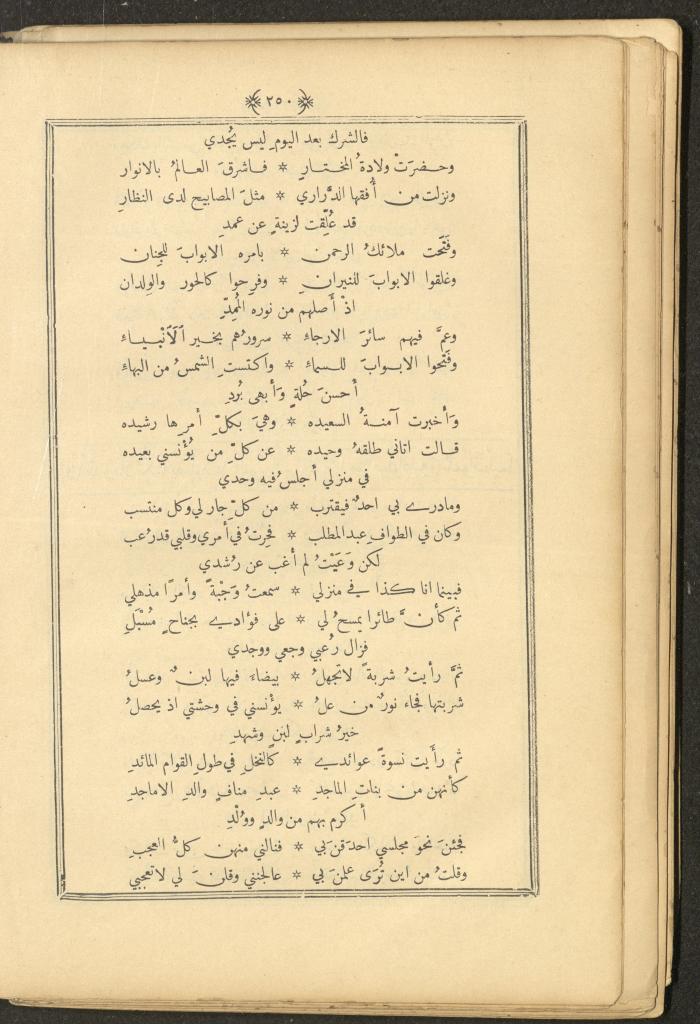 ﴿ ٢٥٠ ﴾
فالشرك بعد اليومِ ليس يُجدي
وحضرَتْ ولادةُ المختارِ * فاشرقَ العالمُ بالانوار
ونزلت من أُفقها الدَّراري * مثلَ المصابيح لدى النظارِ
قد عُلِّقت لزينةٍ عن عمدِ
وفَتَّحت ملائكُ الرحمن * بامره الابوابَ للجِنان
وغلقوا الابوابَ للنيرانِ * وفرِحوا كالحور والوِلدان
اذْ أَصلهم من نوره المُمِدِّ
وعمَّ فيهم سائرَ الارجاء * سرورُهم بخير الْأَنْبِيَاء
وفَتَّحوا الابوابَ للسماءِ * واكتستِ الشمسُ من البهاءِ
أَحسنَ حُلةٍ وَأَبهى بُردِ
وَأَخبرت آمنةُ السعيده * وهيَ بكلِّ أمرِها رشيده
قالت اتاني طلقهُ وحيده * عن كلِّ من يُؤْنسني بعيده
في منزلي أجلسُ فيه وحدي
ومادرے بي احدٌ فيقترب * من كلّ جار لي وكل منتسب
وكان في الطوافِ عبد المطلب * فحِرتُ في أمري وقلبي قدرُعب
لكن وَعَيْتُ لم أغب عن رُشدي
فبينما انا كذا في منزلي * سمعتُ وَجْبةً وأمرًا مذهلي
ثم كأنَّ طائرا يمسحُ لي * على فؤادے بجناحٍ مُسْبَلِ
فزال رُعبي وجعي ووجدي
ثمَّ رأيتُ شربةً لاتجهلُ * بيضاءَ فيها لبنٌ وعسلُ
شربتها فجاء نورٌ من علُ * يؤنسني في وحشتي اذ يحصلُ
خيرُ شرابٍ لبَنٍ وشهدِ
ثم رأَيت نسوةً عوائدے * كالنخلِ في طولِ القوام المائدِ
كأنهن من بناتِ الماجدِ * عبدِ منافٍ والدِ الاماجدِ
أكرم بهم من والدٍ ووُلْدِ
فجئنَ نحوَ مجلسي احدَقن بي * فنالني منهن كلُّ العجبِ
وقلتُ من اين تُرَى علمن بي * عالجنني وقلنَ لي لاتعجبي